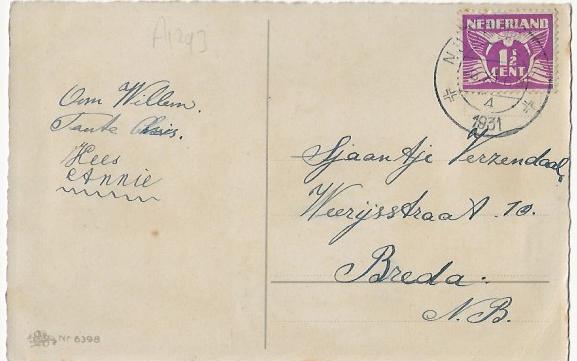 A1293
Oom Willem.
Tante
Kees
Annie
NEDERLAND
1½
CENT
4
1931
Sjaantje Verzendaal,
Weerijsstraat 10.
Breda.
N.B.
Nr 6398